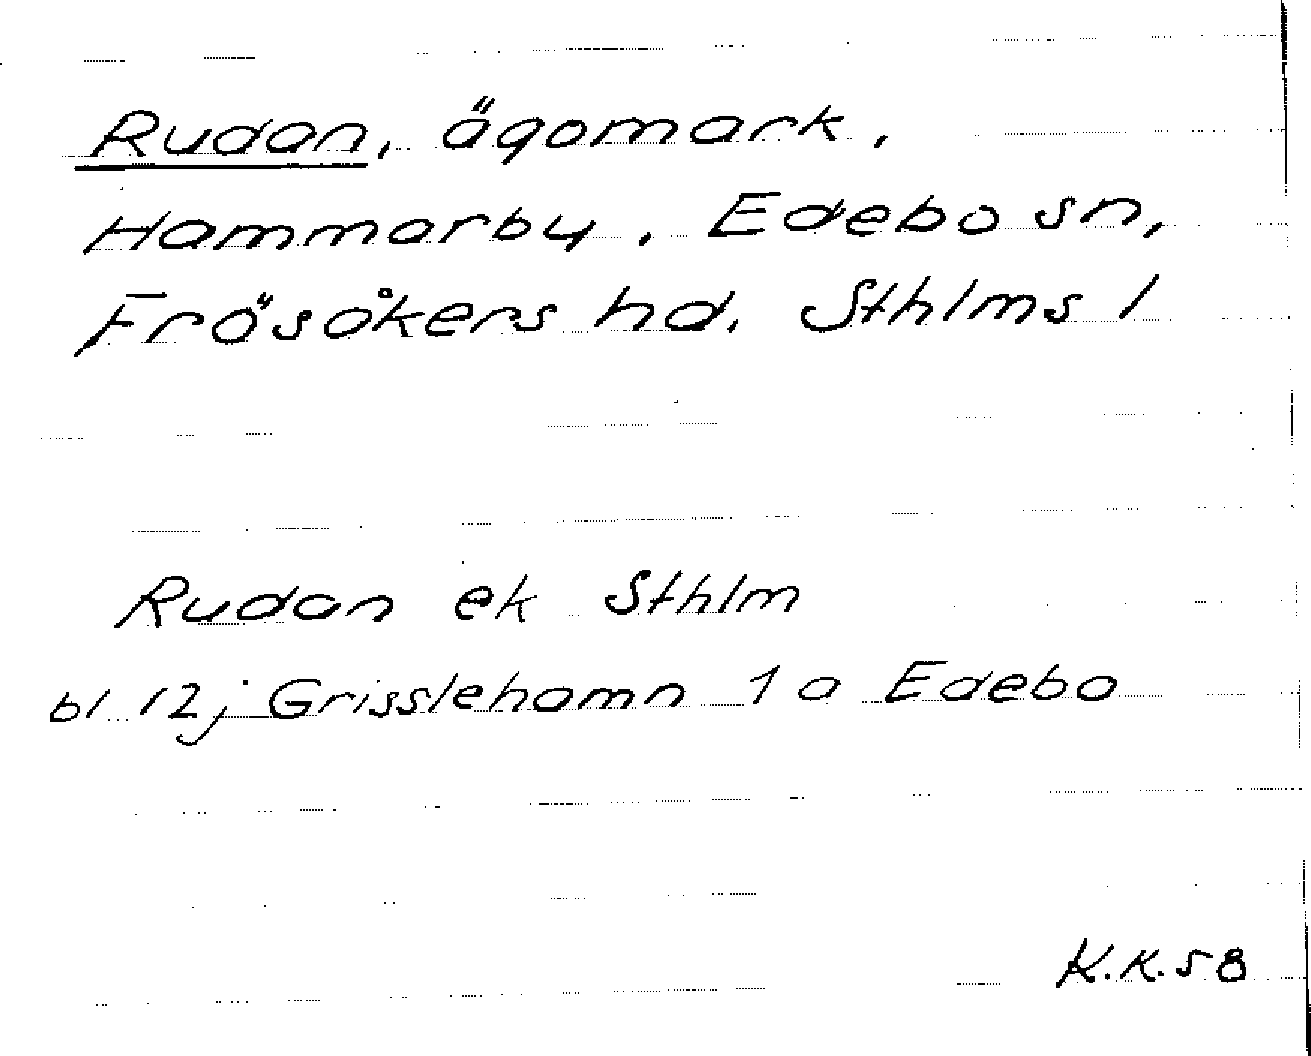 Rudan, ägomark,
Hammarby, Edebo sn,
Frösåkers hd. Sthlms l
Rudan ek Sthlm
bl 12j Grisslehamn 1 a Edebo
K.K. 58